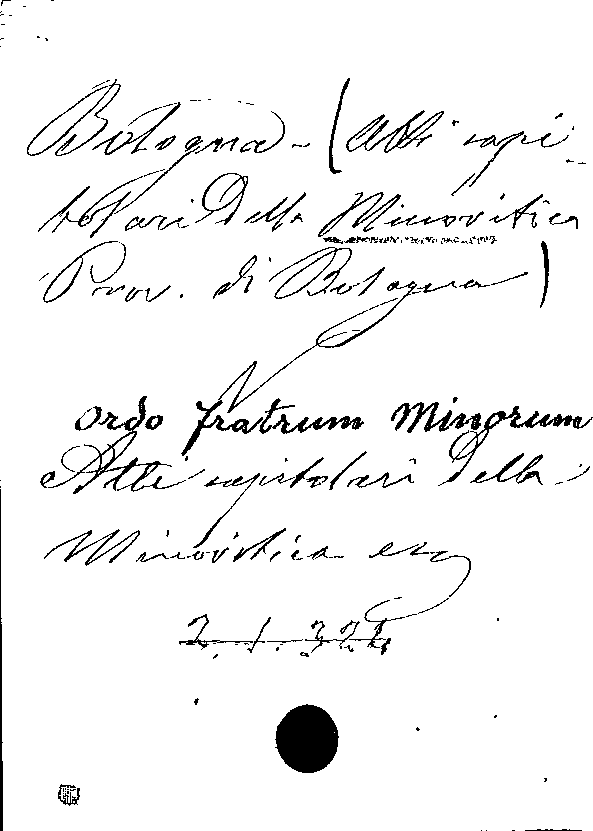 Bologna - (Atti capi-
tolari Della Minoritica
Prov. di Bologna)
Ordo fratrum Minorum
Atti capitolari Della
Minoritica ec
2. 1. 324